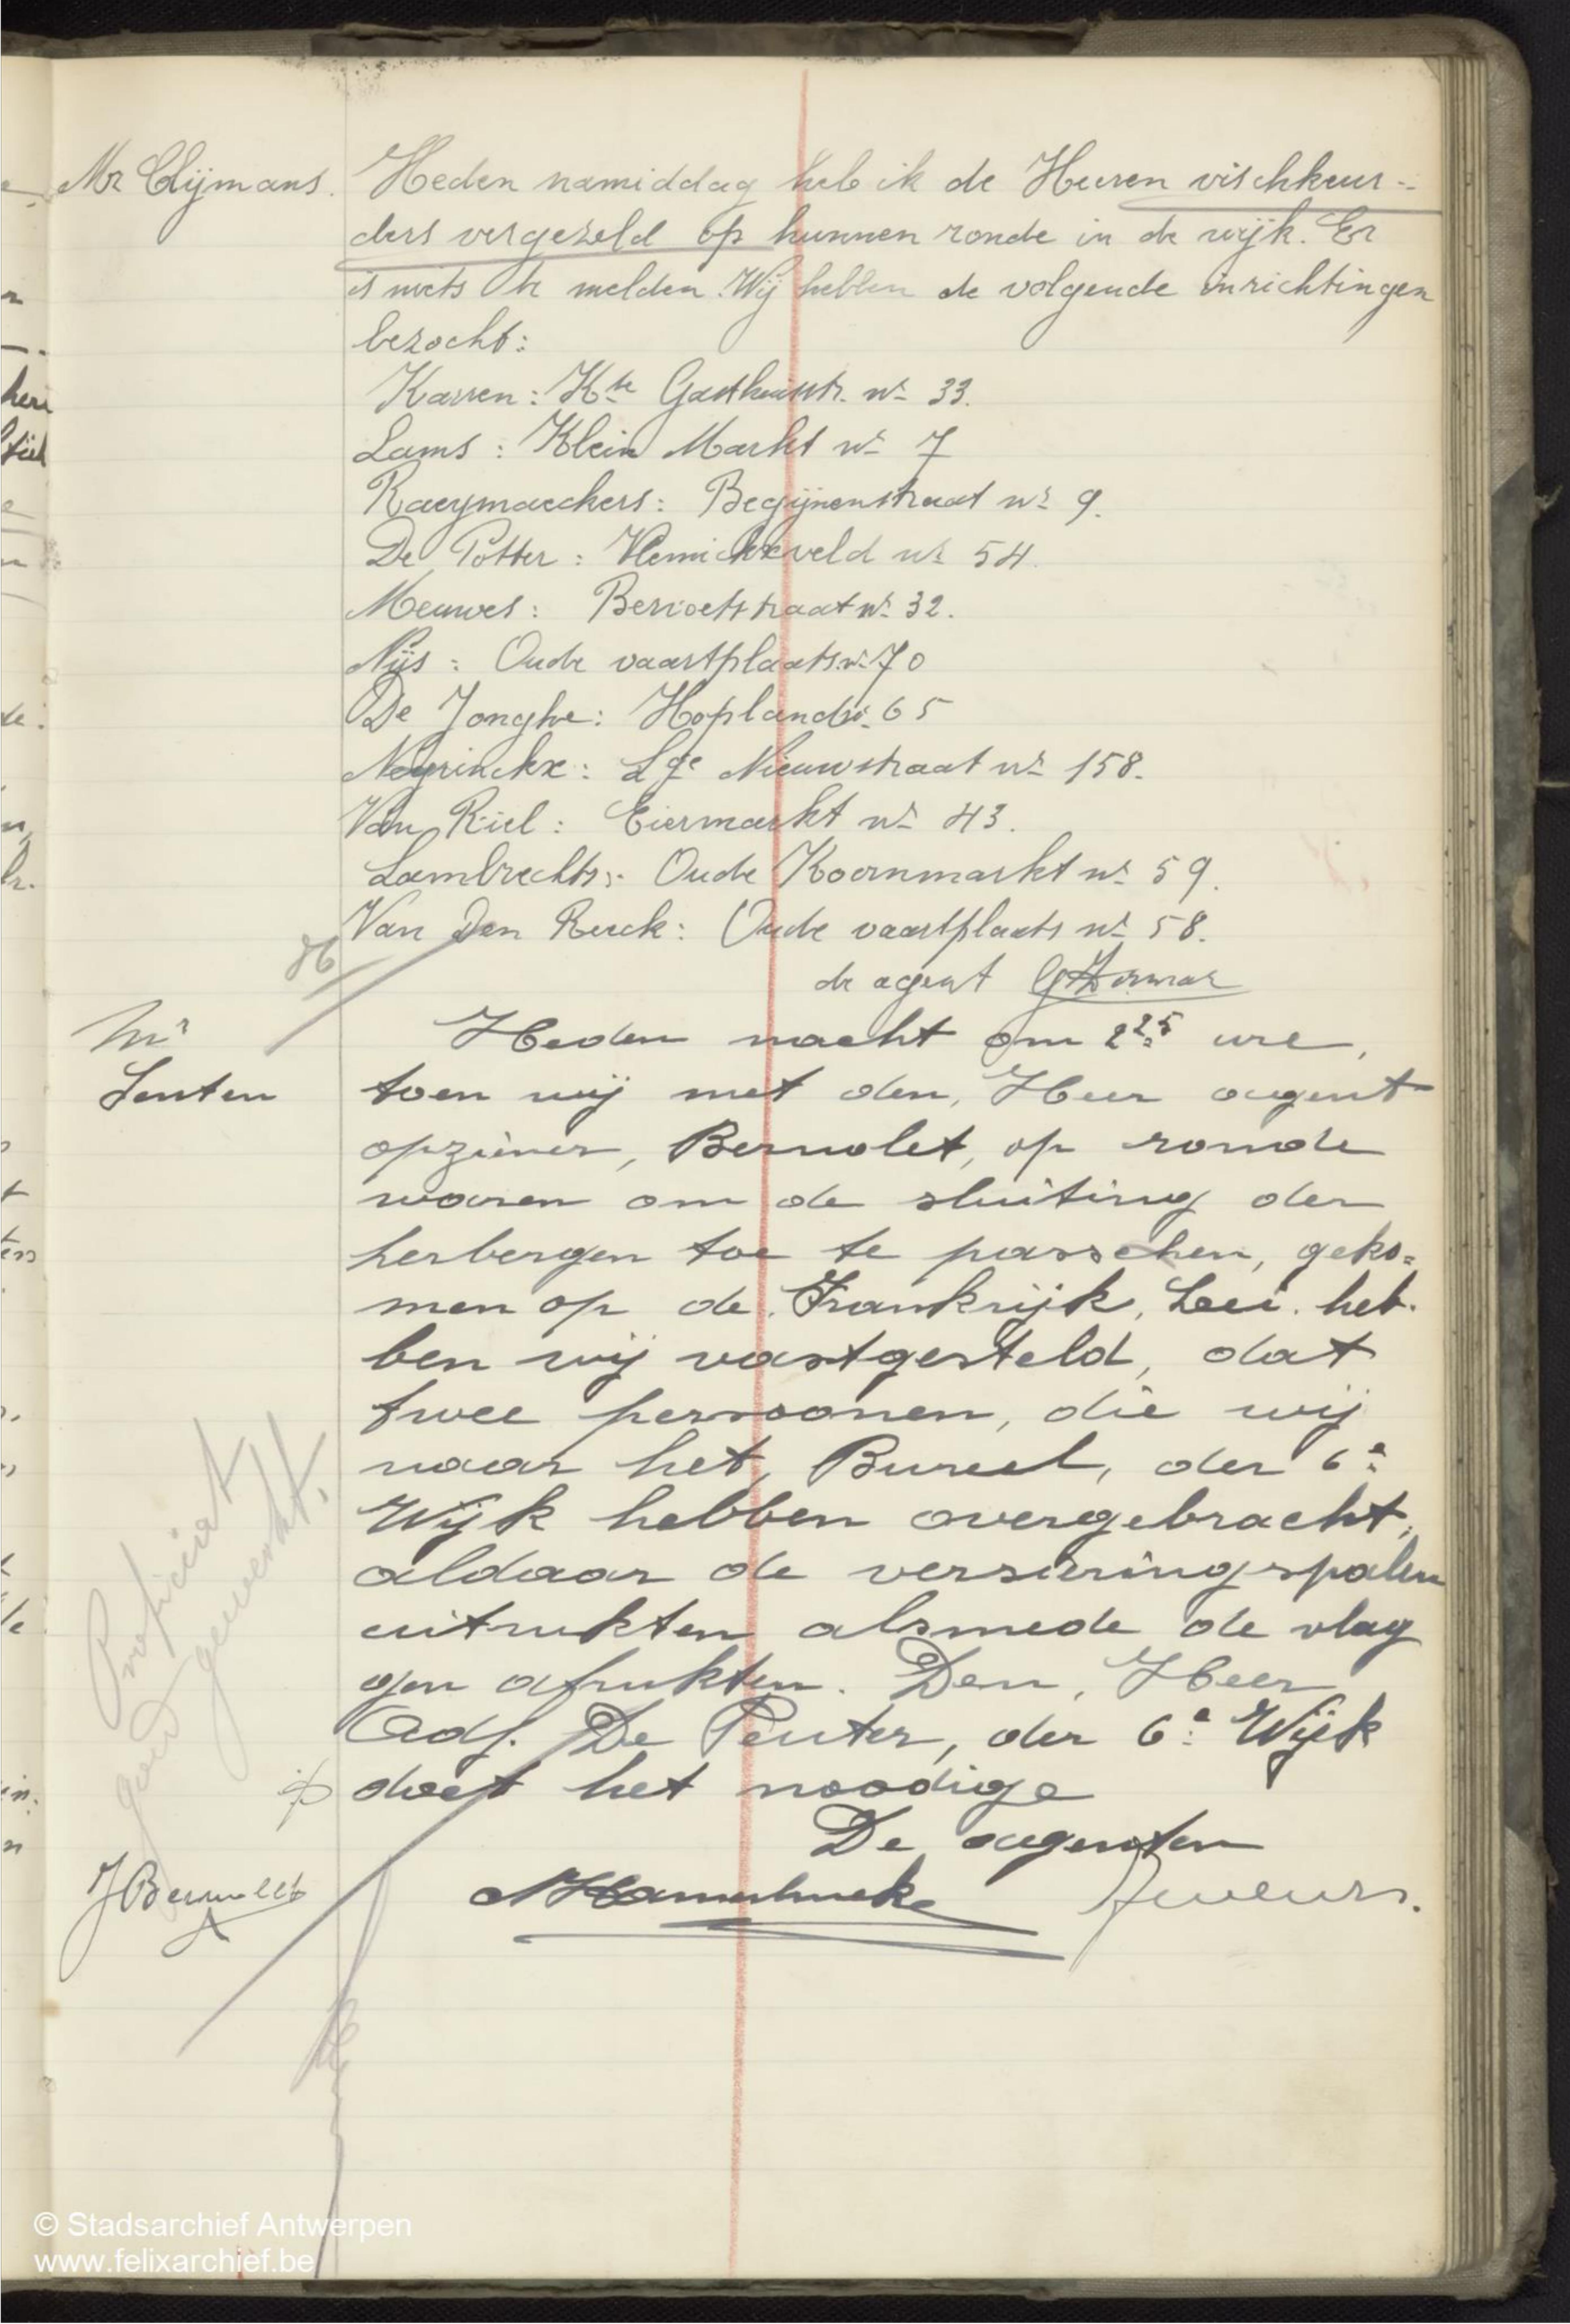 Mr Clijmans.
Heden namiddag heb ik de Heeren vischkeur-
ders vergezeld op hunnen ronde in de wijk. Er
is niets te melden. Wij hebben de volgende inrichtingen
bezocht:
Karren: Kte Gasthuisstr. nr 33.
Lams: Klein Markt nr 7
Raeymaeckers: Begijnenstraat nr 9.
De Potter: Vlemickxveld nr 54.
Meuwes: Bervoetstraat nr 32.
Nijs: Oude vaartplaats nr 70
De Jonghe: Hopland nr 65
Neyrinckx: Lge Nieuwstraat nr 158.
Van Riel: Eiermarkt nr 43.
Lambrechts: Oude Koornmarkt nr 59.
Van Den Kerck: Oude vaartplaats nr 58.
de agent
Mr
Senten
Heden nacht om 2 25 ure,
toen wij met den, Heer agent
opziener, Bernolet, op ronde
waren om de sluiting der
herbergen toe te passchen, geko=
men op de, Frankrijk, Leei. heb-
ben wij vastgesteld, dat
twee persoonen, die wij
naar het, Bureel, der 6e
Wijk hebben overgebracht,
aldaar de versieringspalen
uitrukten alsmede de vlag
gen afrukten. Den, Heer
Adj. De Peuter, der 6e Wijk
doet het noodige
De agenten
Proficiat
goed gewerkt.
JBernolet
© Stadsarchief Antwerpen
www.felixarchief.be